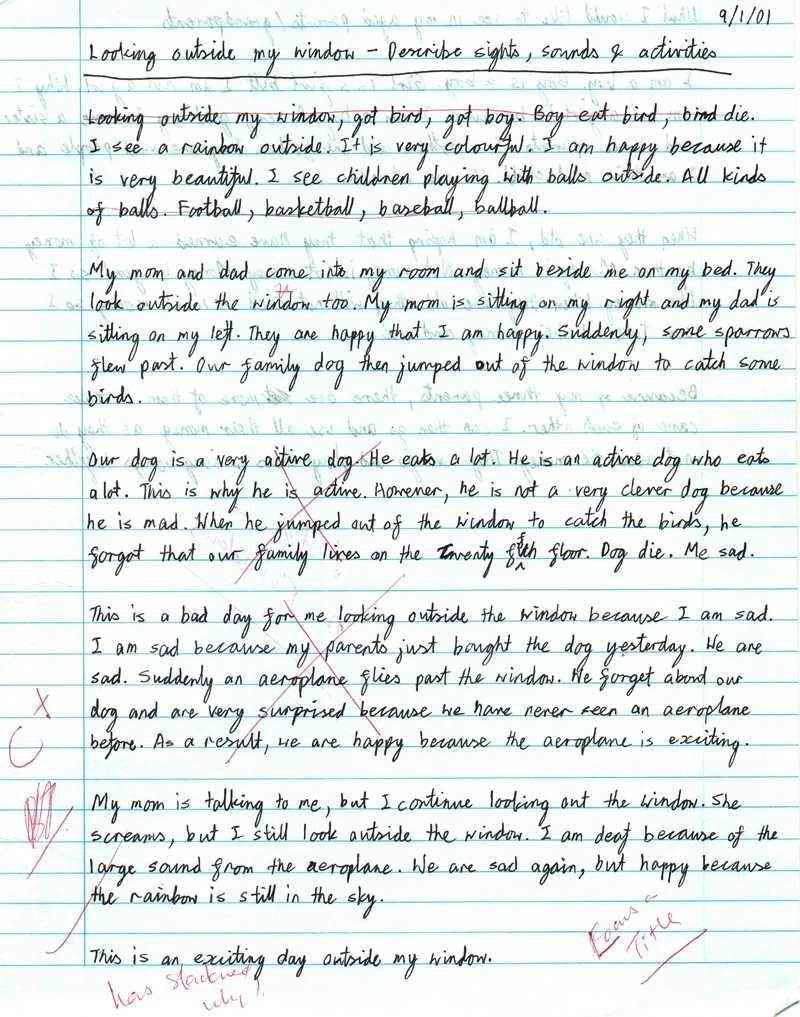 9/1/01
Looking outside my window - Describe sights, sounds & activities
Looking outside my window, got bird, got boy. Boy eat bird, bird die.
I see a rainbow outside. It is very colourful. I am happy because it
is very beautiful. I see children playing with balls outside. All kinds
of balls. Football, basketball, baseball, ballball.
My mom and dad come into my room and sit beside me on my bed. They
look outside the window too. My mom is sitting on my right and my dad is
sitting on my left. They are happy that I am happy. Suddenly, some sparrows
flew past. Our family dog then jumped out of the window to catch some
birds.
Our dog is a very active dog. He eats a lot. He is an active dog who eats
a lot. This is why he is active. However, he is not a very clever dog because
he is mad. When he jumped out of the window to catch the birds, he
forgot that our family lives on the Twenty fifth floor. Dog die. Me sad.
This is a bad day for me looking outside the window because I am sad.
I am sad because my parents just bought the dog yesterday. We are
sad. Suddenly an aeroplane flies past the window. We forget about our
dog and are very surprised because we have never seen an aeroplane
before. As a result, we are happy because the aeroplane is exciting.
My mom is talking to me, but I continue looking out the window. She
screams, but I still look outside the window. I am deaf because of the
large sound from the aeroplane. We are sad again, but happy because
the rainbow is still in the sky.
This is an exciting day outside my window.
Focus
Title
has slackened
why?